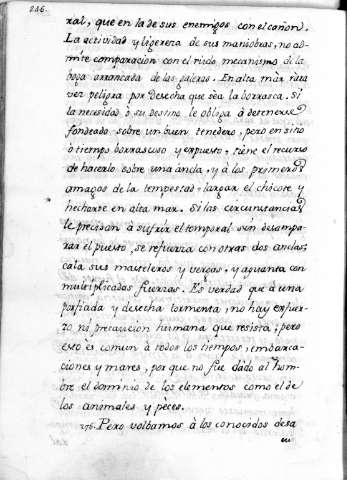 246.
ral, que en la de sus enemigos con el cañon.
La actividad y ligereza de sus maniobras, no ad-
míte comparacion con el rudo mecanismo de la
boga arrancada de las galeras. En alta mar rara
vez peligra por desecha que sea la borrasca. Si
la necesidad ò su destino le obliga à detenerse
fondeado sobre un buen tenedero, pero en sitio
ò tiempo borrascoso y expuesto, tiene el recurso
de hacerlo sobre una àncla, y à los primeros
amagos de la tempestad, largar el chicote y
hecharse en alta mar. Si las circunstancias
le precisan à sufrir el temporal sin desampa-
rar el puesto, se refuerza con otras dos anclas;
cala sus masteleros y vergas, y aguanta con
multiplicadas fuerzas. Es verdad que à una
porfiada y desecha tormenta, no hay esfuer-
zo ni precaucion humana que resista; pero
esto ès comun à todos los tiempos, embarca-
ciones y mares, por que no fue dado al hom-
bre el dominio de los elementos como el de
los animales y pèces.
276. Pero volbamos à los conocidos desa
cu